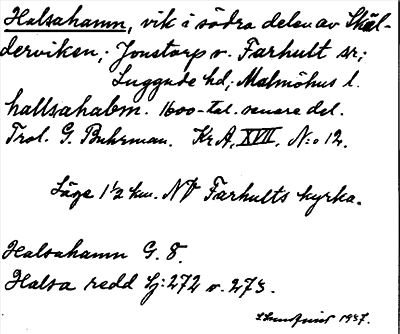 Halsahamn, vik i södra delen av Skäl-
derviken; Jonstorp o. Farhult sr;
Luggude hd; Malmöhus l.
hallsahabm. 1600-tal. senare del.
Trol. G. Buhrman. KrA, XVIII, N:o 12.
Läge 1 1/2 km. NV Farhults kyrka.
Halsahamn G. 8.
Halsa redd Lj: 272 o. 273.
1937.